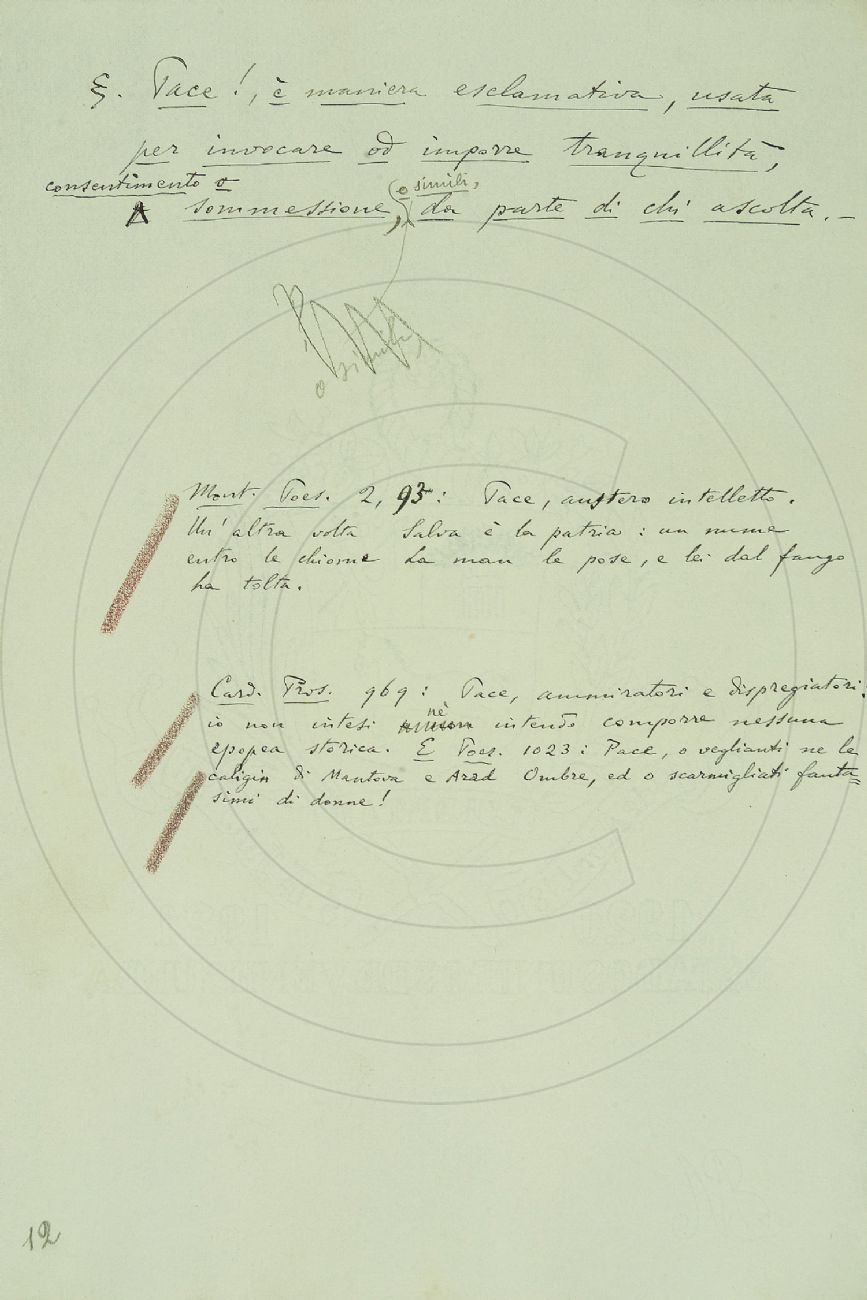 §. Pace!, è maniera esclamativa, usata
per invocare od imporre tranquillità,
consentimento o
sommessione, o simili, da parte di chi ascolta. —
o simili,
Mont. Poes. 2, 93: Pace, austero intelletto.
Un'altra volta Salva è la patria: un nume
entro le chiome La man le pose, e lei dal fango
ha tolta.
Card. Pros. 969: Pace, ammiratori e dispregiatori:
io non intesi nè intendo comporre nessuna
epopea storica. E Poes. 1023: Pace, o veglianti ne la
caligin di Mantova e Arad Ombre, ed o scarmigliati fanta=
simi di donne!
12